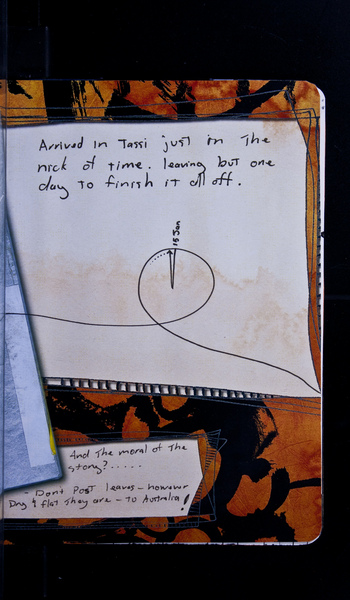 Arrived in Tassi just in the
nick of time. leaving but one
day to finish it all off.
15 Jan
And the moral of the
story?......
- Dont Post leaves - however
Dry & flat they are - to Australia!